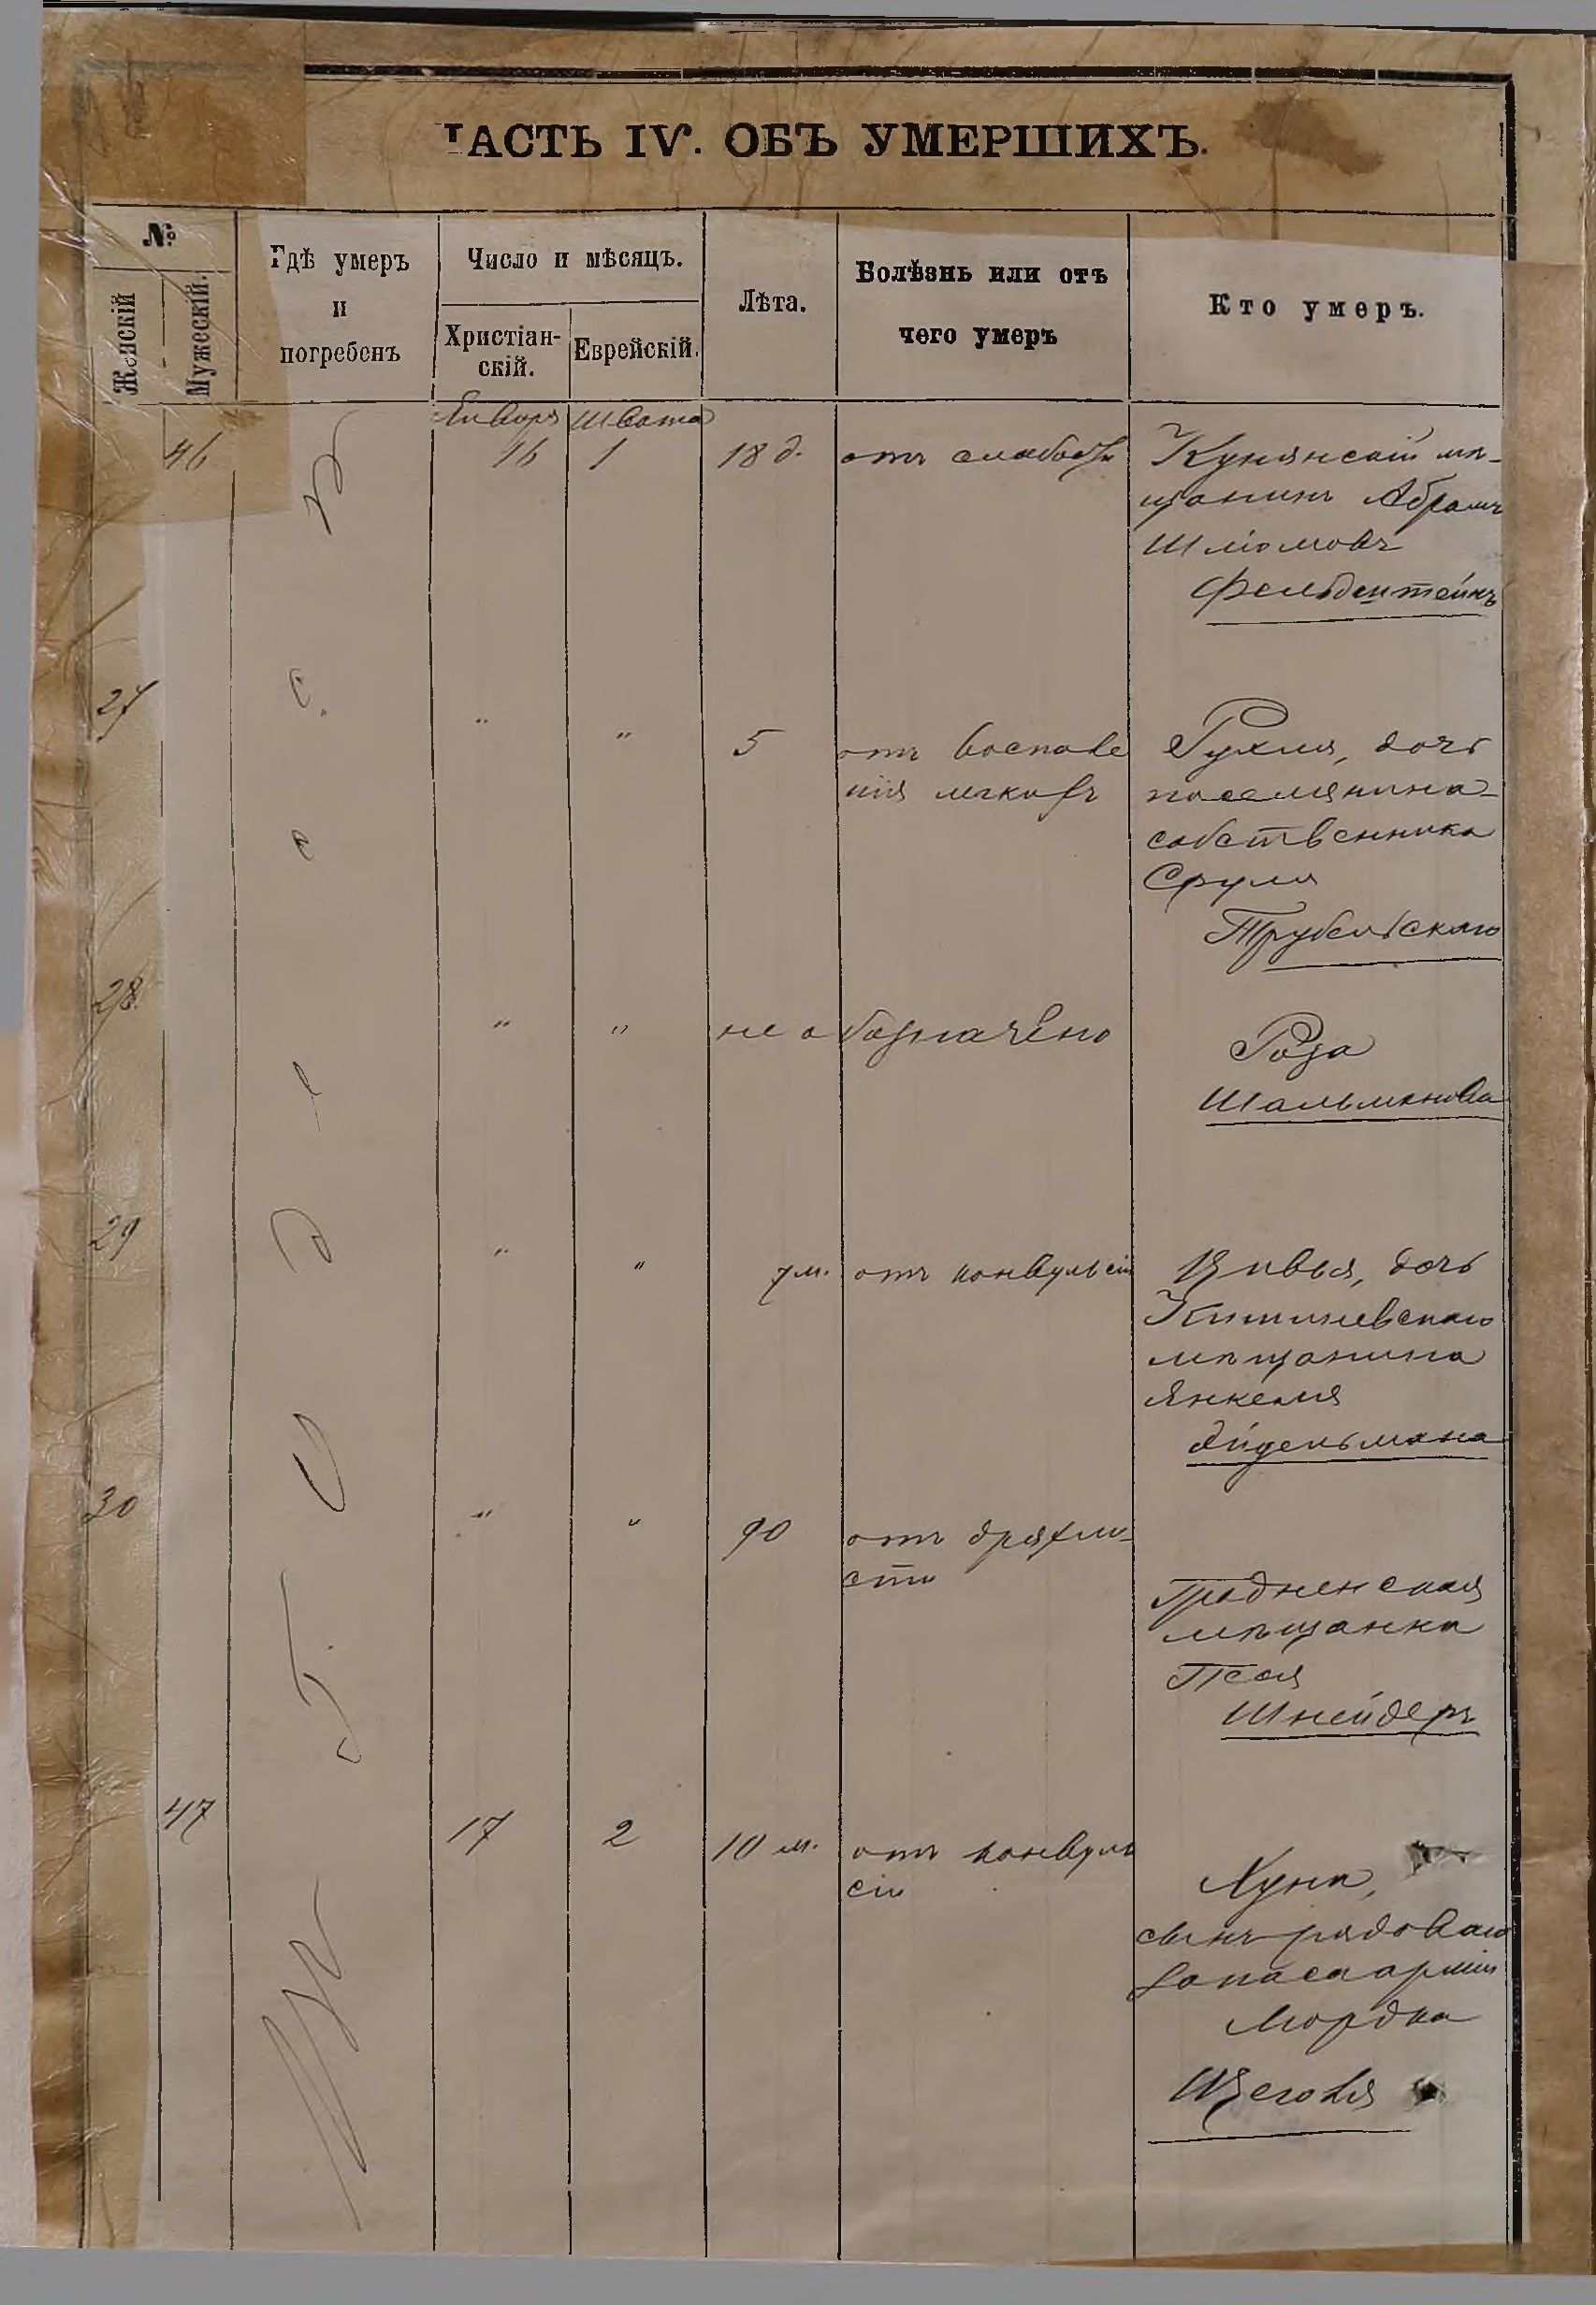 ЧАСТЬ IV. ОБЪ УМЕРШИХЪ.
№
Женскій
Мужескій.
Гдѣ умеръ
и
погребенъ
Число и мѣсяцъ.
Христіан-
скій.
Еврейскій.
Лѣта.
Болѣзнь или отъ
чего умеръ
Кто умеръ.
Января Швата
46 16 1 18 д. отъ слабости
мѣ-
щанинъ Абрамъ
Шлiомовъ
Фельдештейнъ
27 " " 5 отъ воспале
нія легкихъ
Рухля, дочь
поселянина-
собственника
Сруля
Трубельскаго
28 " " не обозначено
Роза
Шальманова
29 " " 7 м. отъ конвульсій
Цивья, дочь
Кишиневскаго
мѣщанина
Янкеля
Айдельмана
30 " " 90 отъ дряхло-
сти
Гродненская
мѣщанка
Песя
Шнейдеръ
47 17 2 10 м. отъ конвуль
сій
Хуна,
сынъ рядоваго
запаса арміи
Мордка
Щеголя
Въ г. Одессѣ